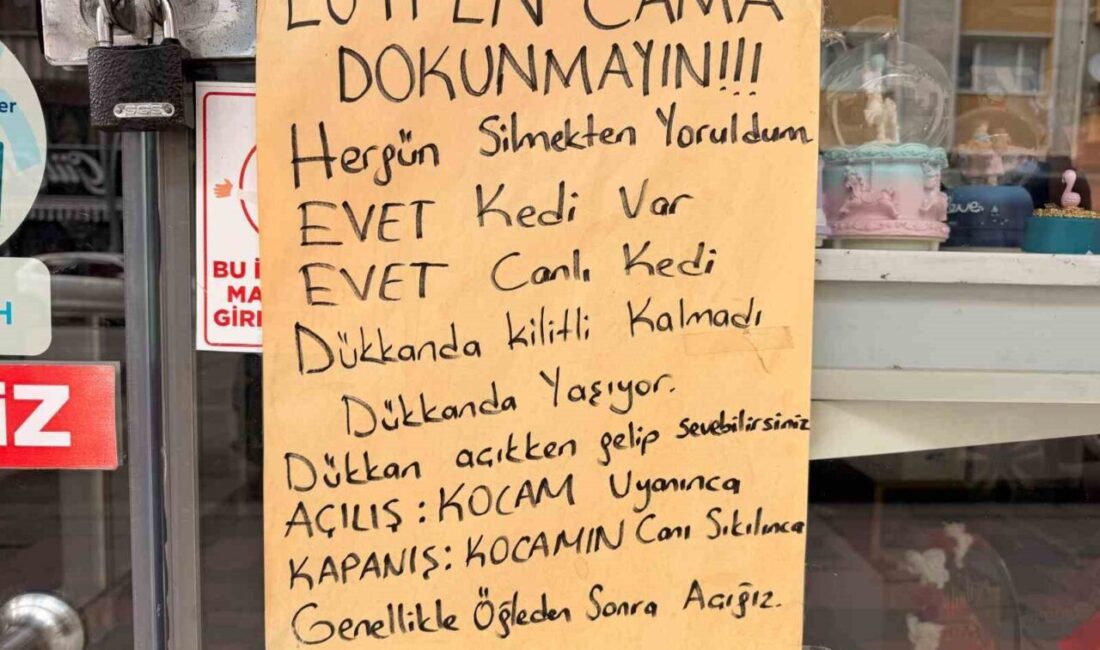 LÜTFEN CAMA
DOKUNMAYIN!!!
Hergün Silmekten Yoruldum
EVET Kedi Var
EVET Canlı Kedi
Dükkanda kilitli Kalmadı
Dükkanda Yaşıyor.
Dükkan açıkken gelip sevebilirsiniz
AÇILIŞ : KOCAM Uyanınca
KAPANIŞ: KOCAMIN Canı Sıkılınca
Genellikle Öğleden Sonra Açığız.
BU
MA
GİRİ
er
H
İZ